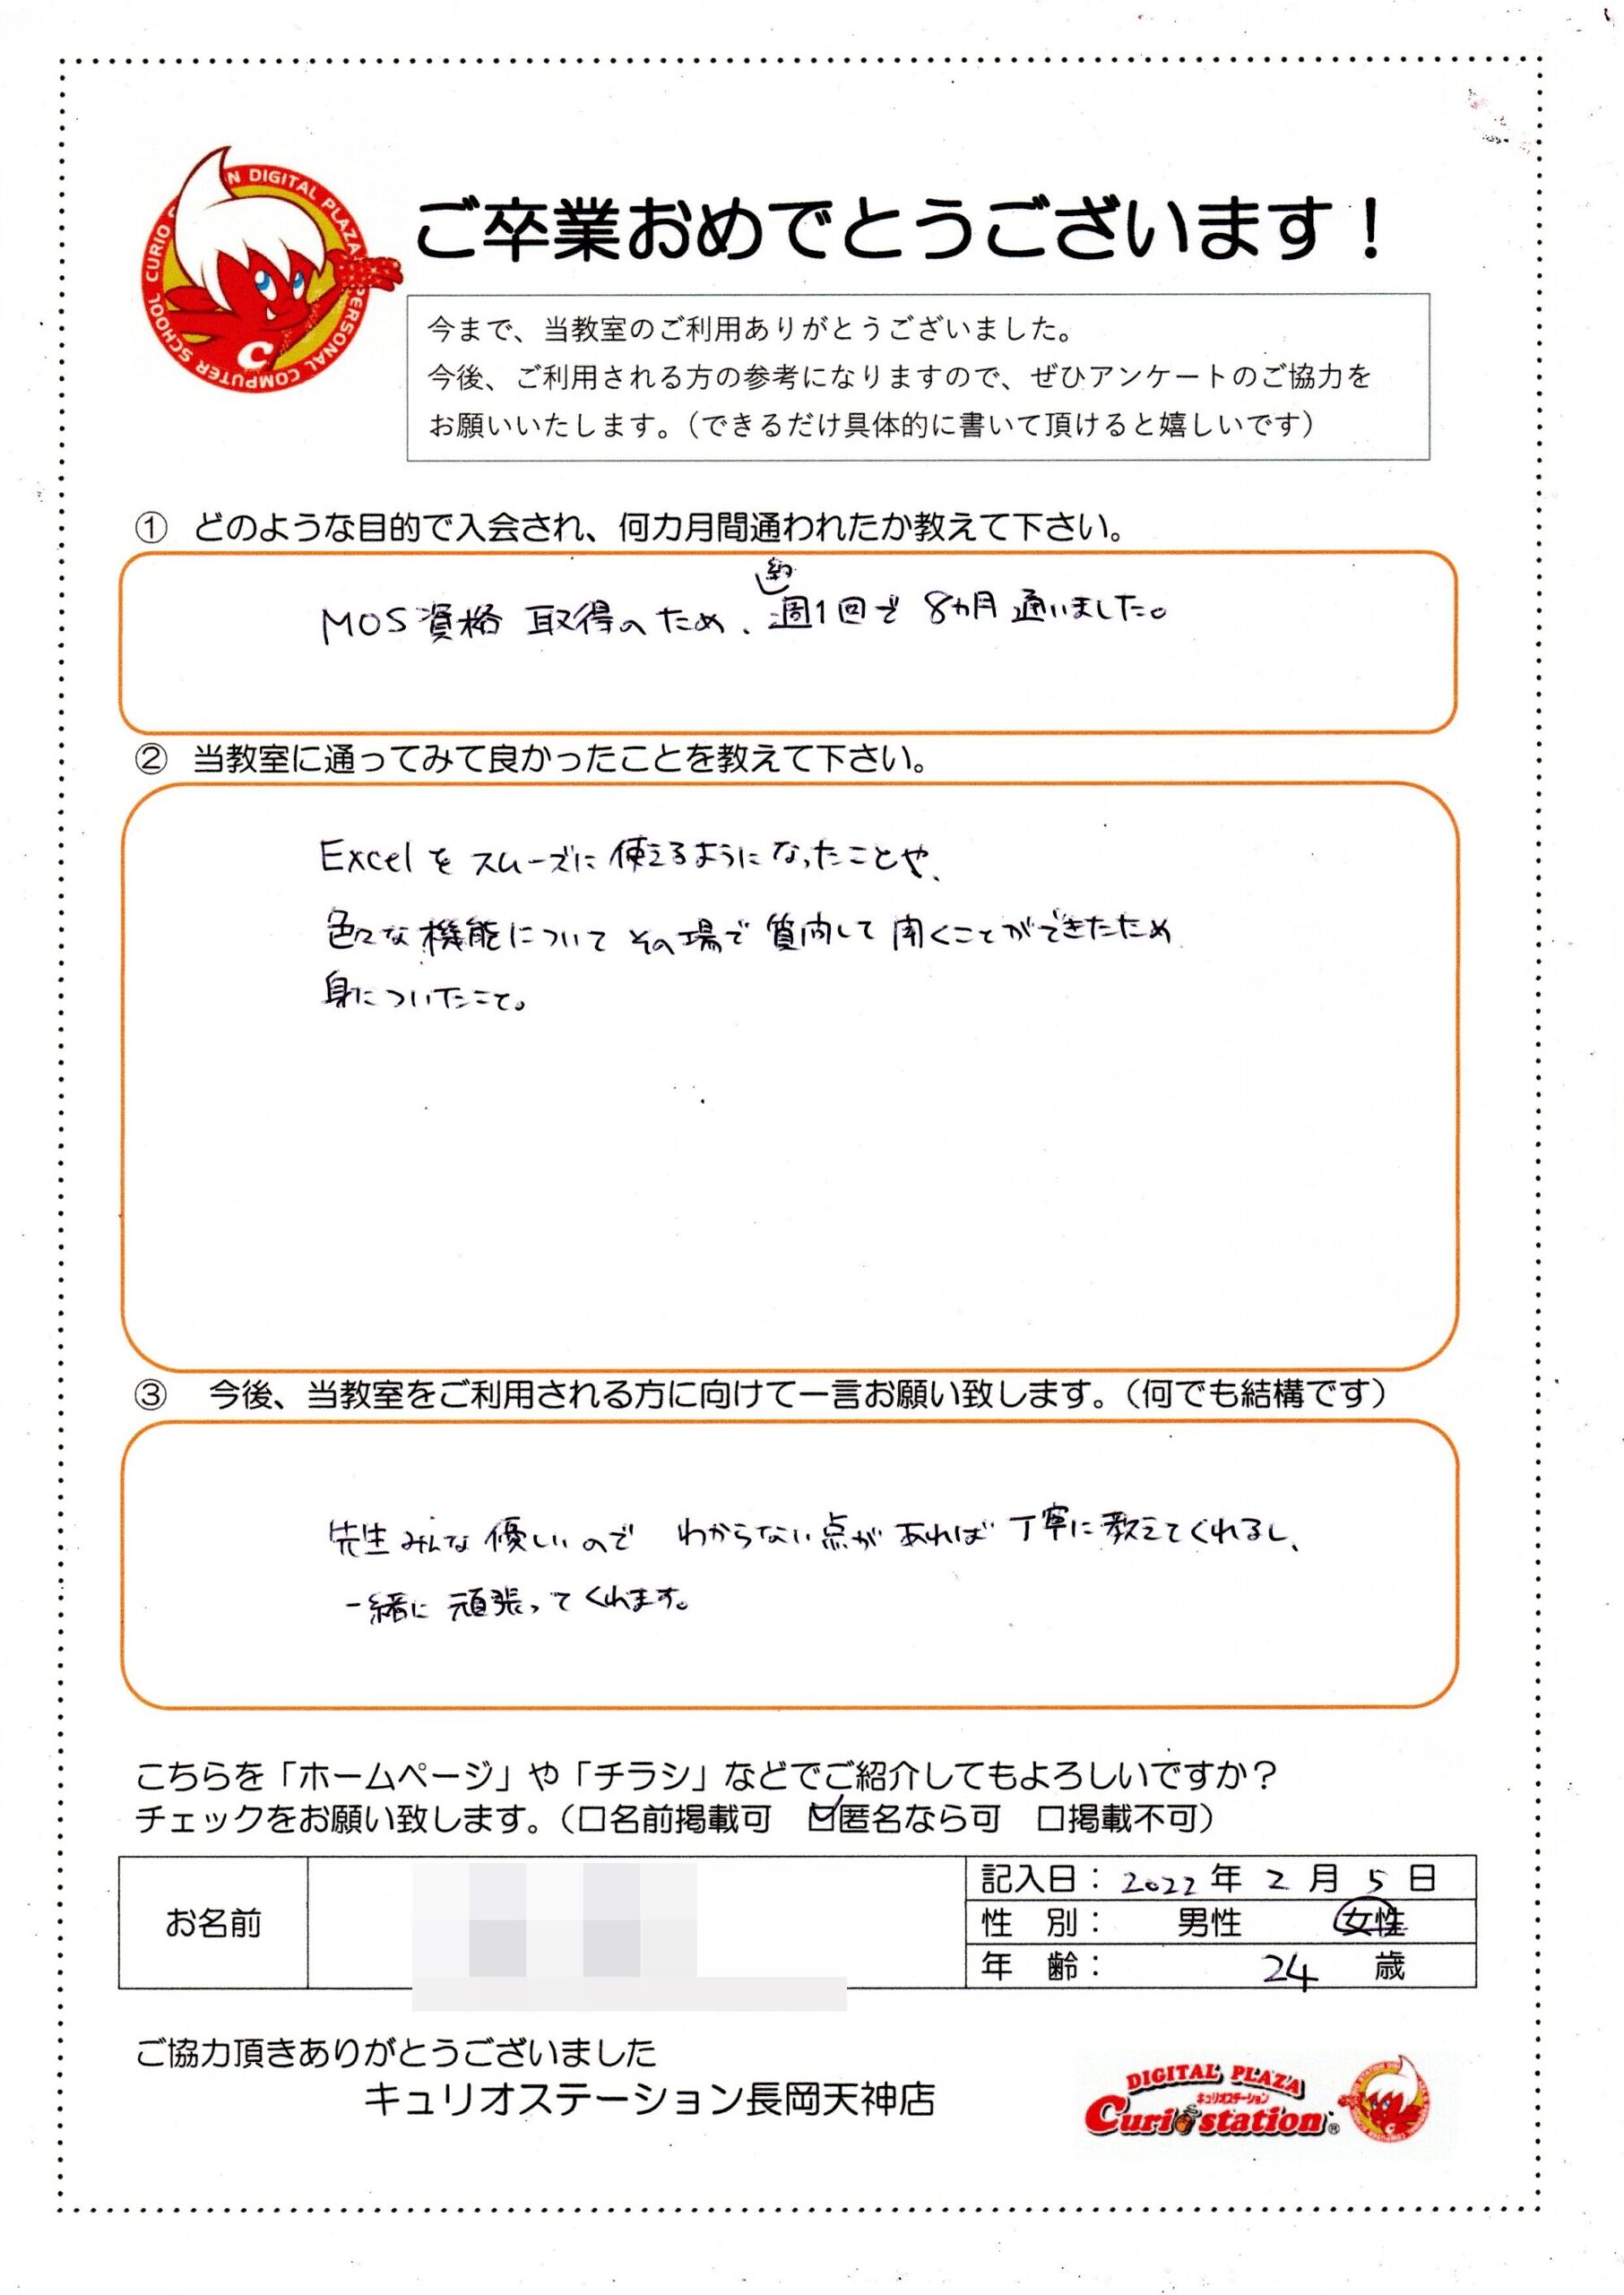 CURIO STATION DIGITAL PLAZA PERSONAL COMPUTER SCHOOL
C
ご卒業おめでとうございます！
今まで、当教室のご利用ありがとうございました。
今後、ご利用される方の参考になりますので、ぜひアンケートのご協力を
お願いいたします。（できるだけ具体的に書いて頂けると嬉しいです）
① どのような目的で入会され、何カ月間通われたか教えて下さい。
MOS資格 取得のため、約週1回で 8カ月 通いました。
② 当教室に通ってみて良かったことを教えて下さい。
Excelを スムーズに 使えるようになったことや、
色々な機能について その場で 質問して 聞くことができたため
身についたこと。
③ 今後、当教室をご利用される方に向けて一言お願い致します。（何でも結構です）
先生みんな優しいので わからない点が あれば 丁寧に教えてくれるし、
一緒に 頑張ってくれます。
こちらを「ホームページ」や「チラシ」などでご紹介してもよろしいですか？
チェックをお願い致します。（□名前掲載可 ☑匿名なら可 □掲載不可）
お名前
記入日： 2022 年 2 月 5 日
性 別： 男性 女性
年 齢： 24 歳
ご協力頂きありがとうございました
キュリオステーション長岡天神店
DIGITAL PLAZA
キュリオステーション
Curio station®